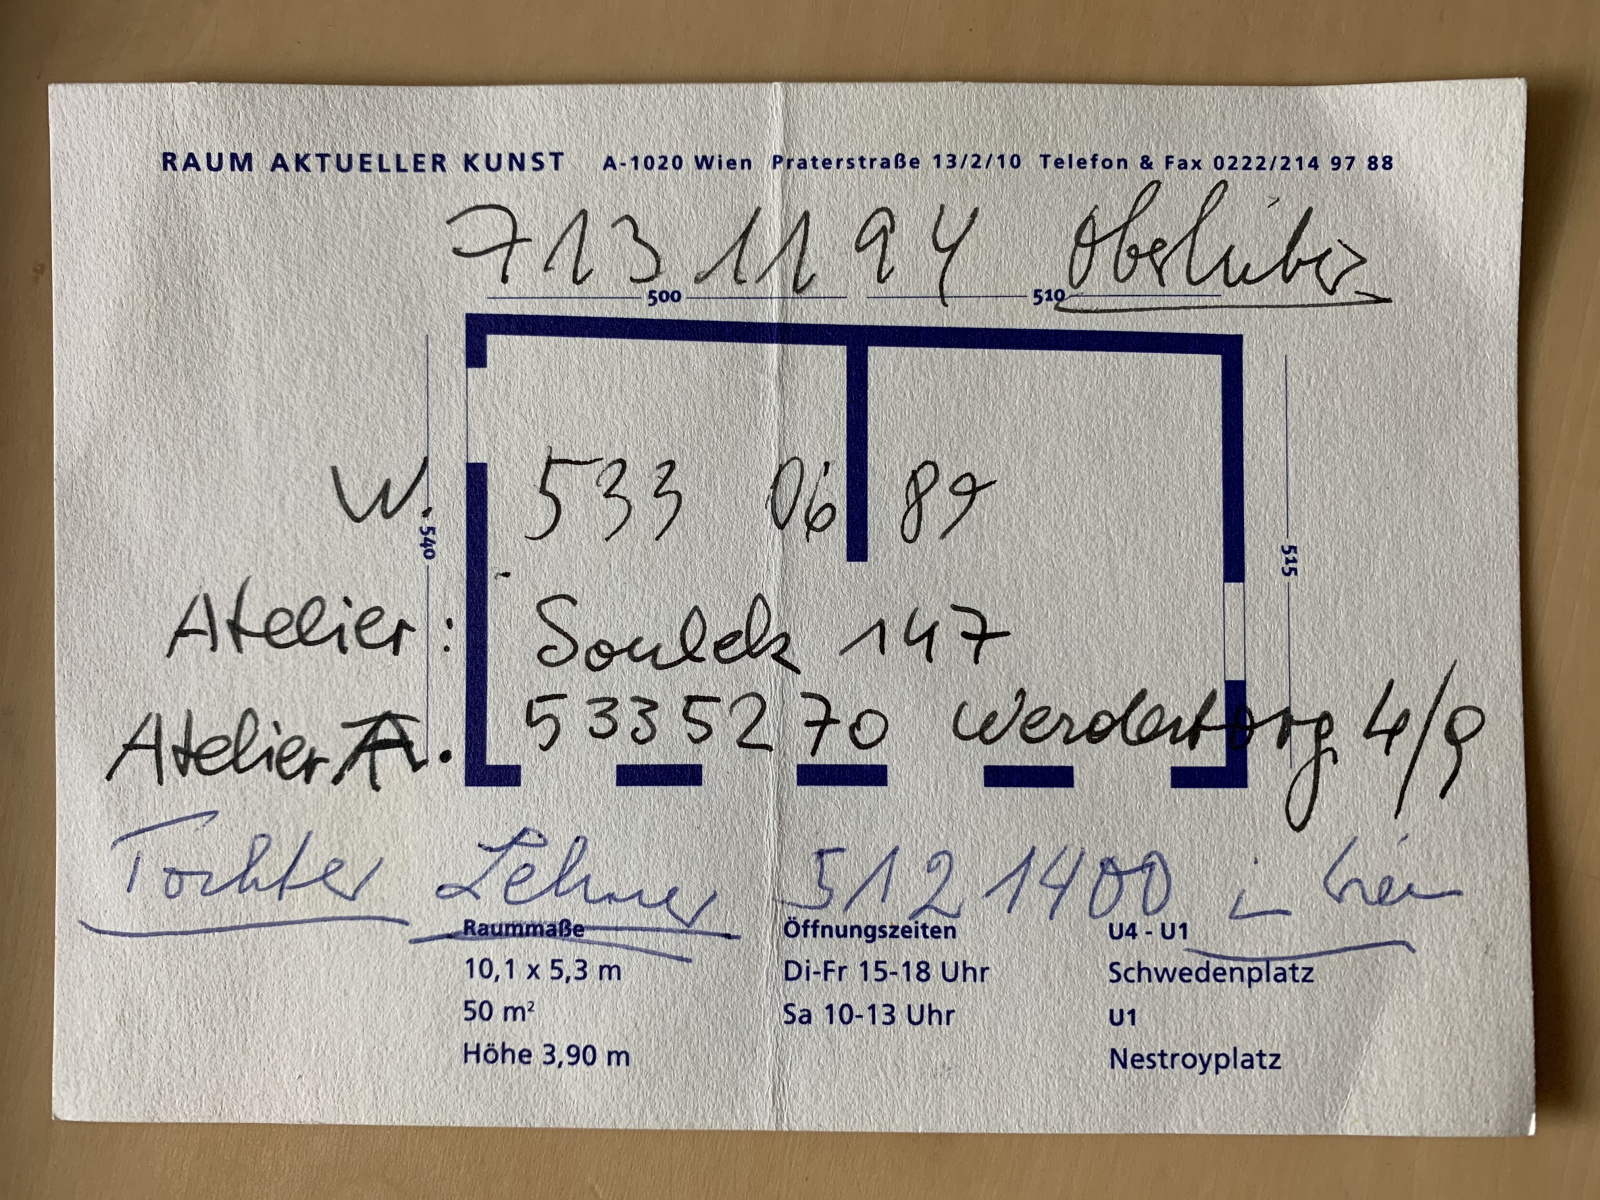 RAUM AKTUELLER KUNST A-1020 Wien Praterstraße 13/2/10 Telefon & Fax 0222/214 97 88
713 11 94
500 510
W. 533 06 89
540
515
Atelier: 147
Atelier A. 533 52 70 Werdertorg 4/9
Tochter Lehner 512 1400 in Wien
Raummaße
10,1 x 5,3 m
50 m²
Höhe 3,90 m
Öffnungszeiten
Di-Fr 15-18 Uhr
Sa 10-13 Uhr
U4 - U1
Schwedenplatz
U1
Nestroyplatz